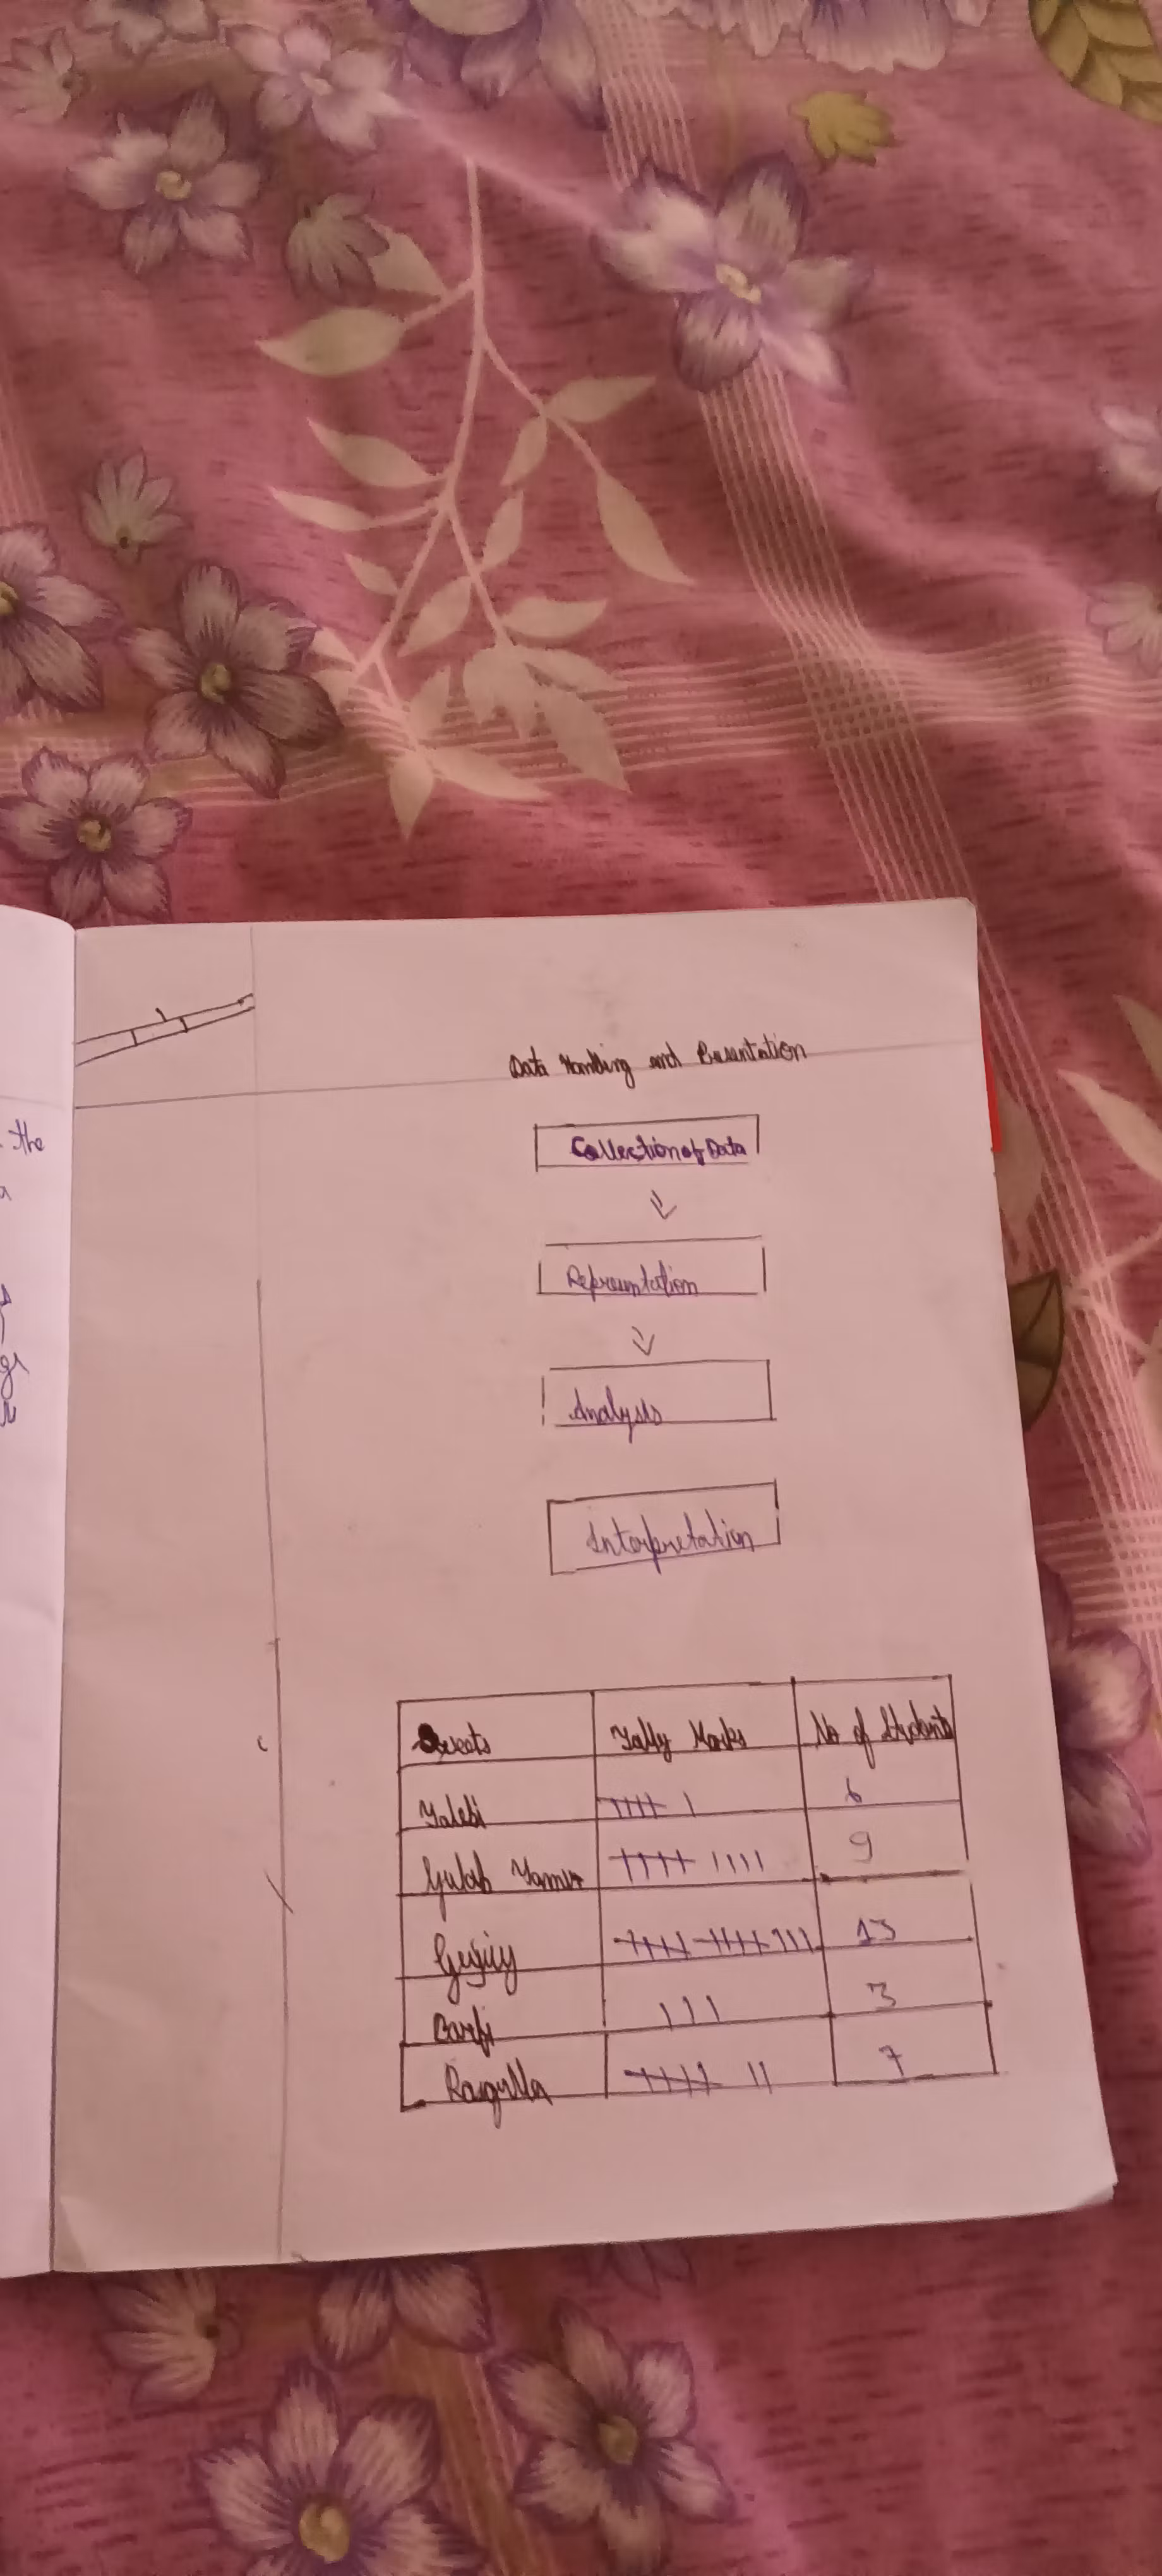 the
a
Data Handling and Presentation
Collection of Data
Representation
Analysis
Interpretation
Sweets Tally Marks No of Students
Jalebi 6
Gulab Jamun 9
Gujiy 13
Barfi 3
Rasgulla 7